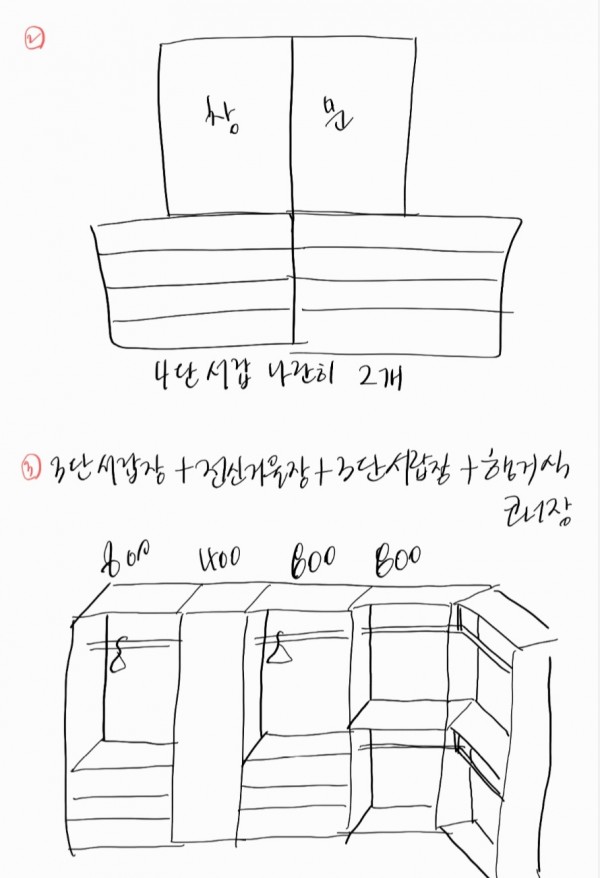 2
창 문
4단 서랍 나란히 2개
3 3단서랍장 + 전신거울장 + 3단서랍장 + 행거식
코너장
800 400 800 800